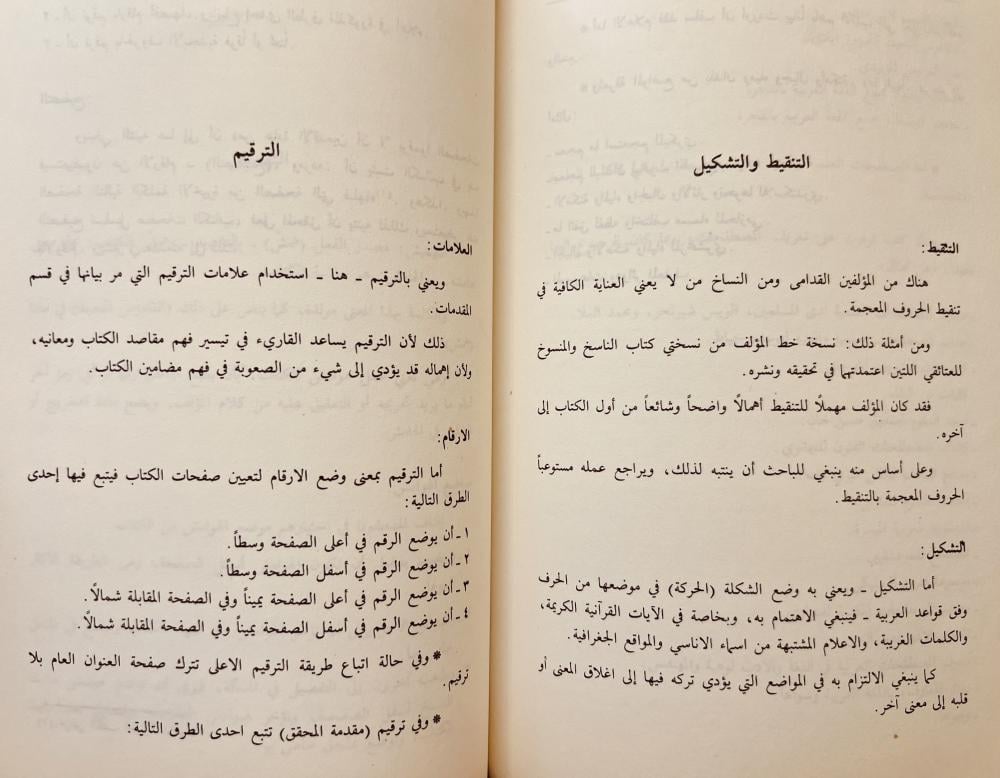 التنقيط والتشكيل
التنقيط:
هناك من المؤلفين القدامى ومن النساخ من لا يعني العناية الكافية في
تنقيط الحروف المعجمة.
ومن أمثلة ذلك: نسخة خط المؤلف من نسختي كتاب الناسخ والمنسوخ
للعتائقي اللتين اعتمدتهما في تحقيقه ونشره.
فقد كان المؤلف مهملاً للتنقيط أهمالاً واضحاً وشائعاً من أول الكتاب إلى
آخره.
وعلى أساس منه ينبغي للباحث أن ينتبه لذلك، ويراجع عمله مستوعباً
الحروف المعجمة بالتنقيط.
التشكيل:
أما التشكيل ـ ويعني به وضع الشكلة (الحركة) في موضعها من الحرف
وفق قواعد العربية ـ فينبغي الاهتمام به، وبخاصة في الآيات القرآنية الكريمة،
والكلمات الغريبة، والاعلام المشتبهة من اسماء الاناسي والمواقع الجغرافية.
كما ينبغي الالتزام به في المواضع التي يؤدي تركه فيها إلى اغلاق المعنى أو
قلبه إلى معنى آخر.
الترقيم
العلامات:
ويعني بالترقيم ـ هنا ـ استخدام علامات الترقيم التي مر بيانها في قسم
المقدمات.
ذلك لأن الترقيم يساعد القاريء في تيسير فهم مقاصد الكتاب ومعانيه،
ولأن إهماله قد يؤدي إلى شيء من الصعوبة في فهم مضامين الكتاب.
الارقام:
أما الترقيم بمعنى وضع الارقام لتعيين صفحات الكتاب فيتبع فيها إحدى
الطرق التالية:
١ ـ أن يوضع الرقم في أعلى الصفحة وسطاً.
٢ ـ أن يوضع الرقم في أسفل الصفحة وسطاً.
٣ ـ أن يوضع الرقم في أعلى الصفحة يميناً وفي الصفحة المقابلة شمالاً.
٤ ـ أن يوضع الرقم في أسفل الصفحة يميناً وفي الصفحة المقابلة شمالاً.
* وفي حالة اتباع طريقة الترقيم الاعلى تترك صفحة العنوان العام بلا
ترقيم.
* وفي ترقيم (مقدمة المحقق) تتبع احدى الطرق التالية: